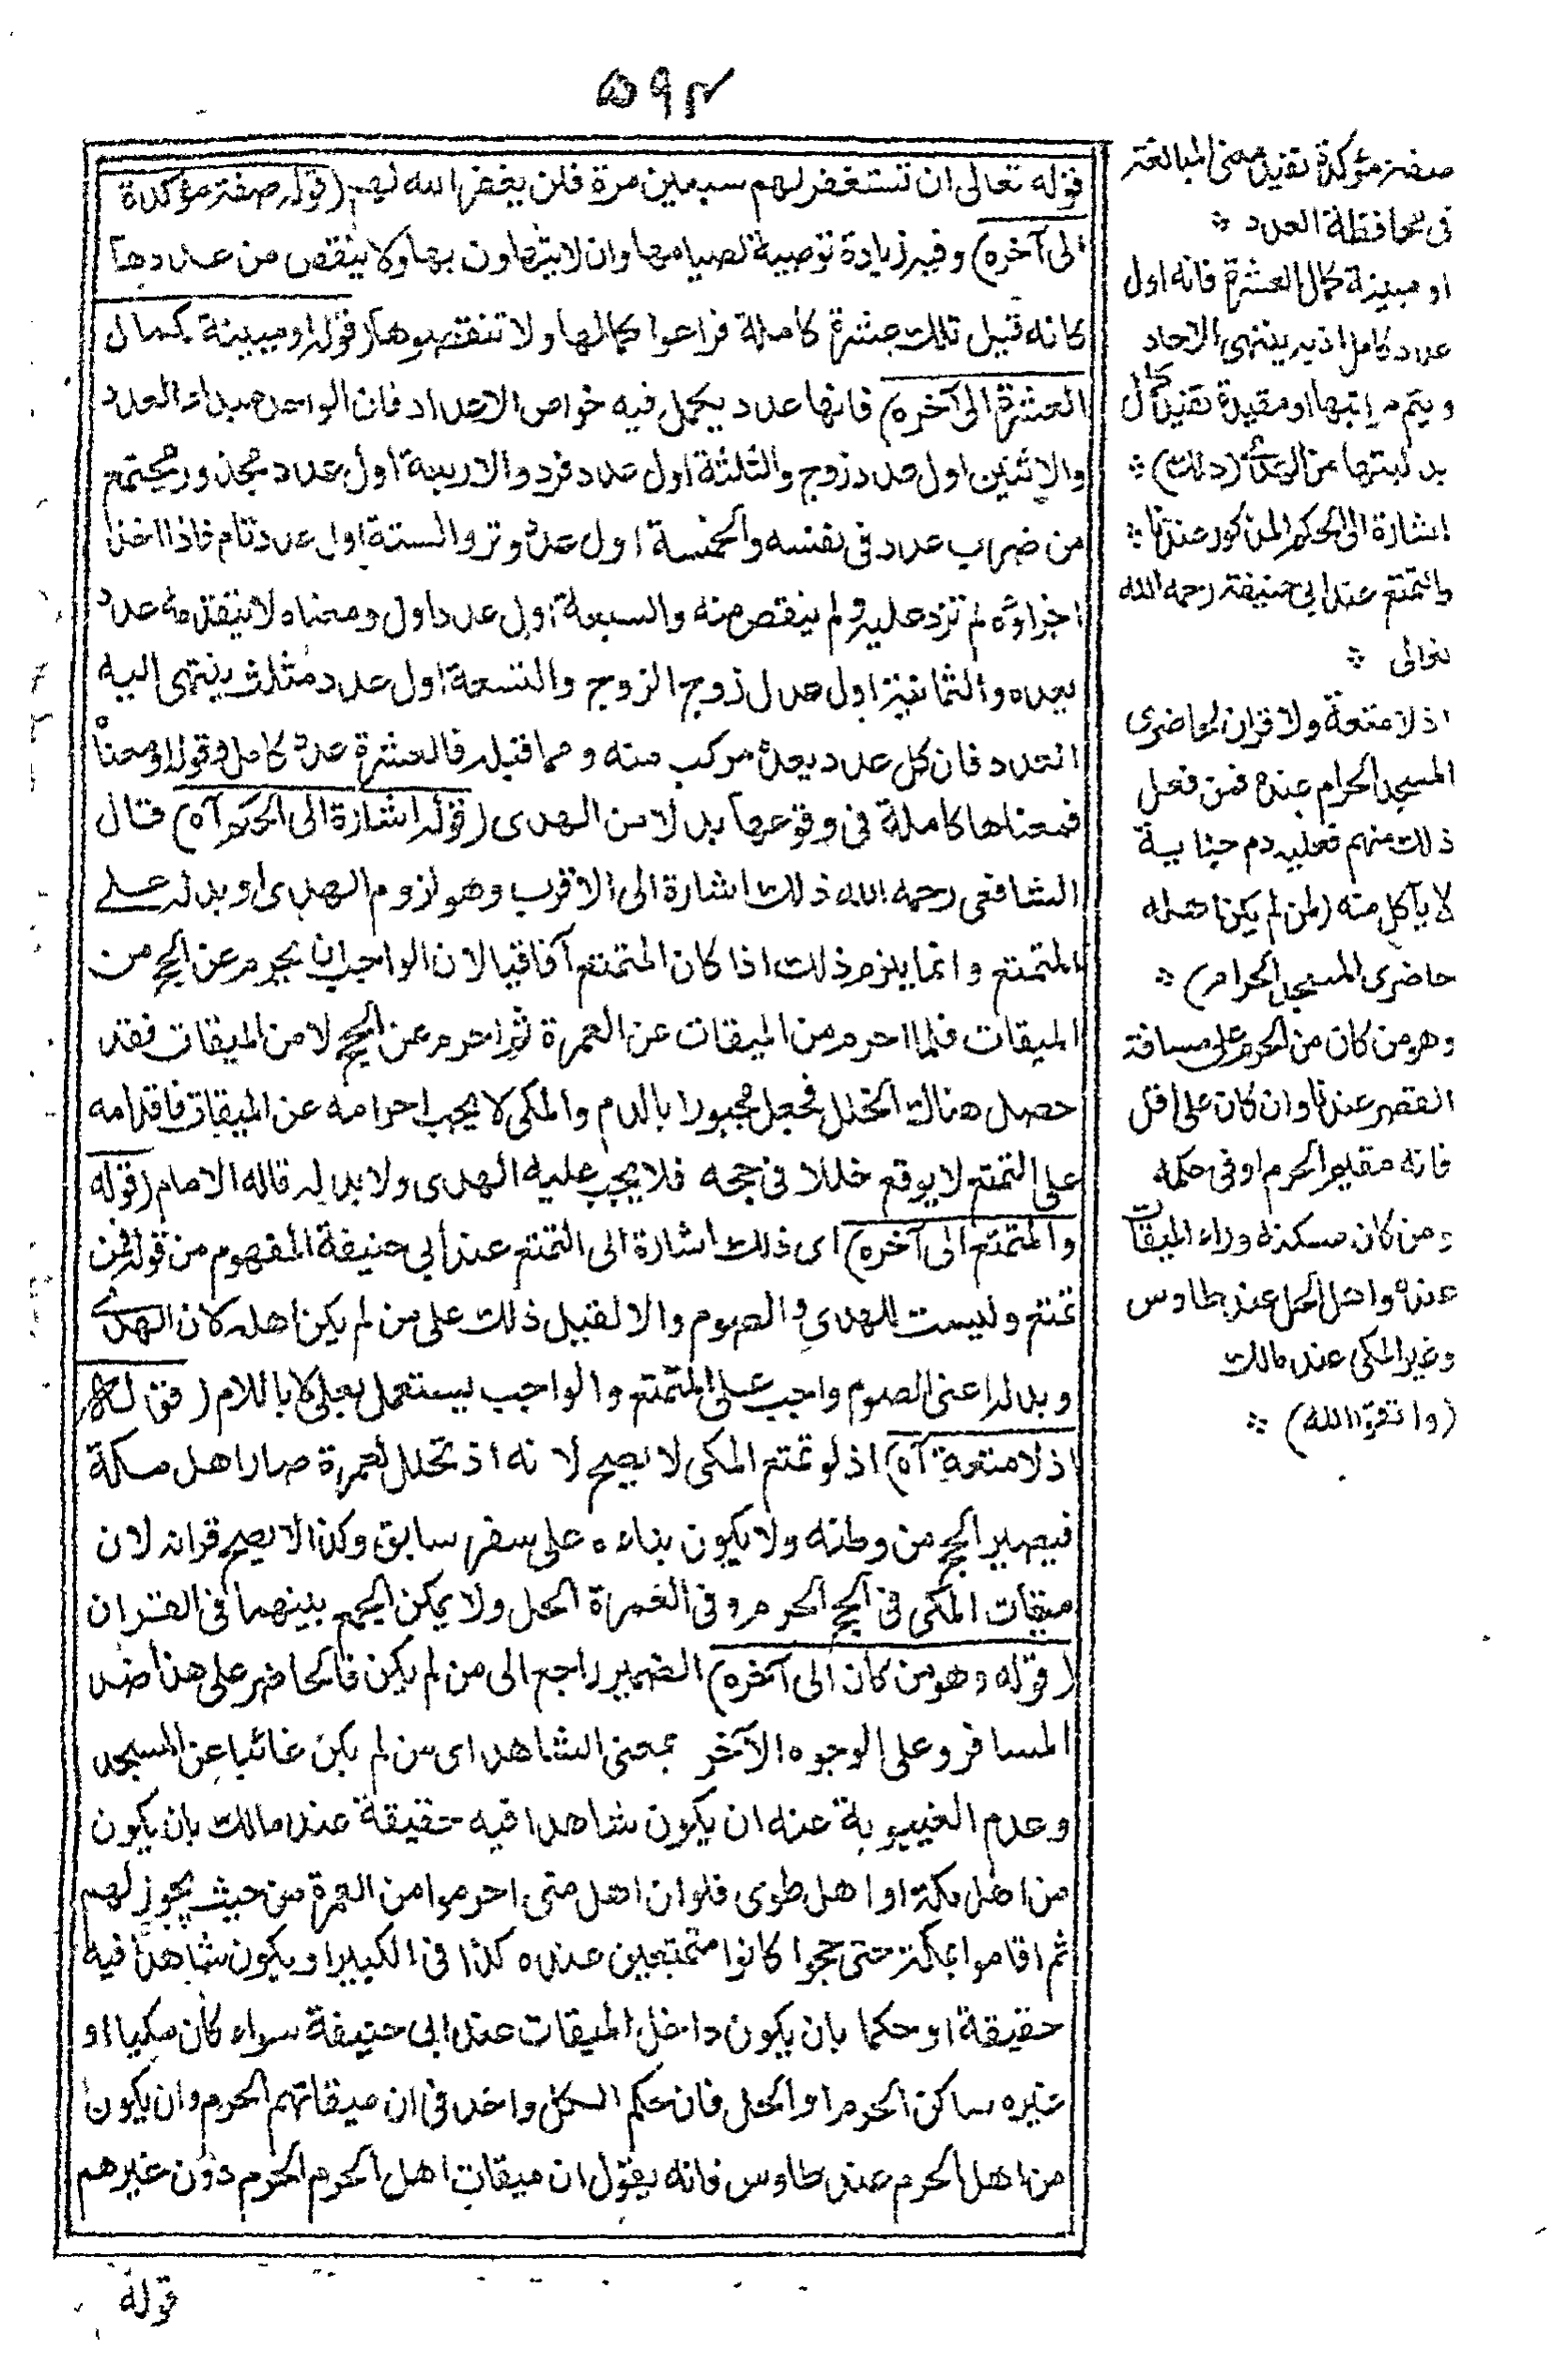 ٥٩٢
قوله تعالى ان تستغفر لهم سبعين مرة فلن يغفر الله لهم (قوله صفة مؤكدة
الى آخره) وفيه زيادة توصية لصيامها وان لا يتهاون بها ولا ينقص من عددها
كانه قيل تلك عشرة كاملة فراعوا كمالها ولا تنقصوها (قوله او مبينة كمال
العشرة الى آخره) فانها عدد يكمل فيه خواص الاعداد فان الواحد مبدء العدد
والاثنين اول عدد زوج والثلثة اول عدد فرد والاربعة اول عدد مجذور مجتمع
من ضرب عدد في نفسه والخمسة اول عدد وتر والستة اول عدد تام فاذا اخذ
اجزاؤه لم تزد عليه ولم ينقص منه والسبعة اول عدد اول ومعناه لا يتقدمه عدد
بعده والثمانية اول عدد زوج الزوج والتسعة اول عدد مثلث ينتهى اليه
العدد فان كل عدد بعده مركب منه ومما قبله فالعشرة عدد كامل وقوله ومعناه
فمعناها كاملة في وقوعها بدلا من الهدى (قوله اشارة الى الحكم آه) قال
الشافعى رحمه الله ذلك اشارة الى الاقرب وهو لزوم الهدى او بدله على
المتمتع وانما يلزم ذلك اذا كان المتمتع آفاقيا لان الواجب ان يحرم عن الحج من
الميقات فلما احرم من الميقات عن العمرة ثم احرم عن الحج لا من الميقات فقد
حصل هناك الخلل فجعل مجبورا بالدم والمكى لا يجب احرامه عن الميقات فاقدامه
على التمتع لا يوقع خللا في حجه فلا يجب عليه الهدى ولا بدله قاله الامام (قوله
والمتمتع الى آخره) اى ذلك اشارة الى التمتع عند أبي حنيفة المفهوم من قوله فمن
تمتع وليست للهدى والصوم والا لقيل ذلك على من لم يكن اهله لان الهدى
وبدله اعنى الصوم واجب على المتمتع والواجب يستعمل بعلى لا باللام (قوله
اذ لا متعة آه) اذ لو تمتع المكى لا يصح لانه اذ تحلل لعمرة صار اهل مكة
فيصير الحج من وطنه ولا يكون بناءه على سفر سابق وكذا لا يصح قرانه لان
ميقات المكى في الحج الحرم وفى العمرة الحل ولا يمكن الجمع بينهما فى القران
(قوله وهو من كان الى آخره) الضمير راجع الى من لم يكن فالحاضر على هذا ضد
المسافر وعلى الوجوه الآخر بمعنى الشاهد اى من لم يكن غائبا عن المسجد
وعدم الغيبوبة عنه ان يكون شاهدا فيه حقيقة عند مالك بان يكون
من اهل مكة او اهل طوى فلو ان اهل متى احرموا من العمرة من حيث يجوز لهم
ثم اقاموا بمكة حتى حجوا كانوا متمتعين عنده كذا فى الكبير او يكون شاهدا فيه
حقيقة او حكما بان يكون داخل الميقات عند ابى حنيفة سواء كان مكيا او
غيره ساكن الحرم او الحل فان حكم الكل واحد فى ان ميقاتهم الحرم وان يكون
من اهل الحرم عند طاوس فانه يقول ان ميقات اهل الحرم الحرم دون غيرهم
قوله
صفة مؤكدة تفيد معنى المبالغة
فى محافظة العدد
او مبينة كمال العشرة فانه اول
عدد كامل اذ به ينتهى الآحاد
ويتم مراتبها او مقيدة تفيد كمال
بدليتها من الهدى (ذلك)
اشارة الى الحكم المذكور عندنا
والتمتع عند ابي حنيفة رحمه الله
تعالى
اذ لا متعة ولا قران لحاضرى
المسجد الحرام عنده فمن فعل
ذلك منهم فعليه دم جناية
لا يأكل منه (لمن لم يكن اهله
حاضرى المسجد الحرام)
وهو من كان من الحرم على مسافة
القصر عندنا وان كان على اقل
فانه مقيم الحرم او فى حكمه
ومن كان مسكنه وراء الميقات
عنده واهل الحل عند طاوس
وغير المكى عند مالك
(واتقوا الله)